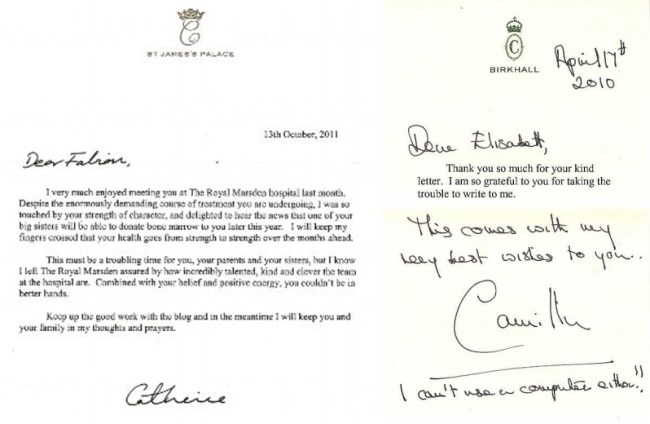 C
ST JAMES'S PALACE
13th October, 2011
Dear Fabian,
I very much enjoyed meeting you at The Royal Marsden hospital last month.
Despite the enormously demanding course of treatment you are undergoing, I was so
touched by your strength of character, and delighted to hear the news that one of your
big sisters will be able to donate bone marrow to you later this year. I will keep my
fingers crossed that your health goes from strength to strength over the months ahead.
This must be a troubling time for you, your parents and your sisters, but I know
I left The Royal Marsden assured by how incredibly talented, kind and clever the team
at the hospital are. Combined with your belief and positive energy, you couldn't be in
better hands.
Keep up the good work with the blog and in the meantime I will keep you and
your family in my thoughts and prayers.
Catherine
C
BIRKHALL
April 17th
2010
Dear Elizabeth,
Thank you so much for your kind
letter. I am so grateful to you for taking the
trouble to write to me.
This comes with my
very best wishes to you..
Camilla
I can't use a computer either!!